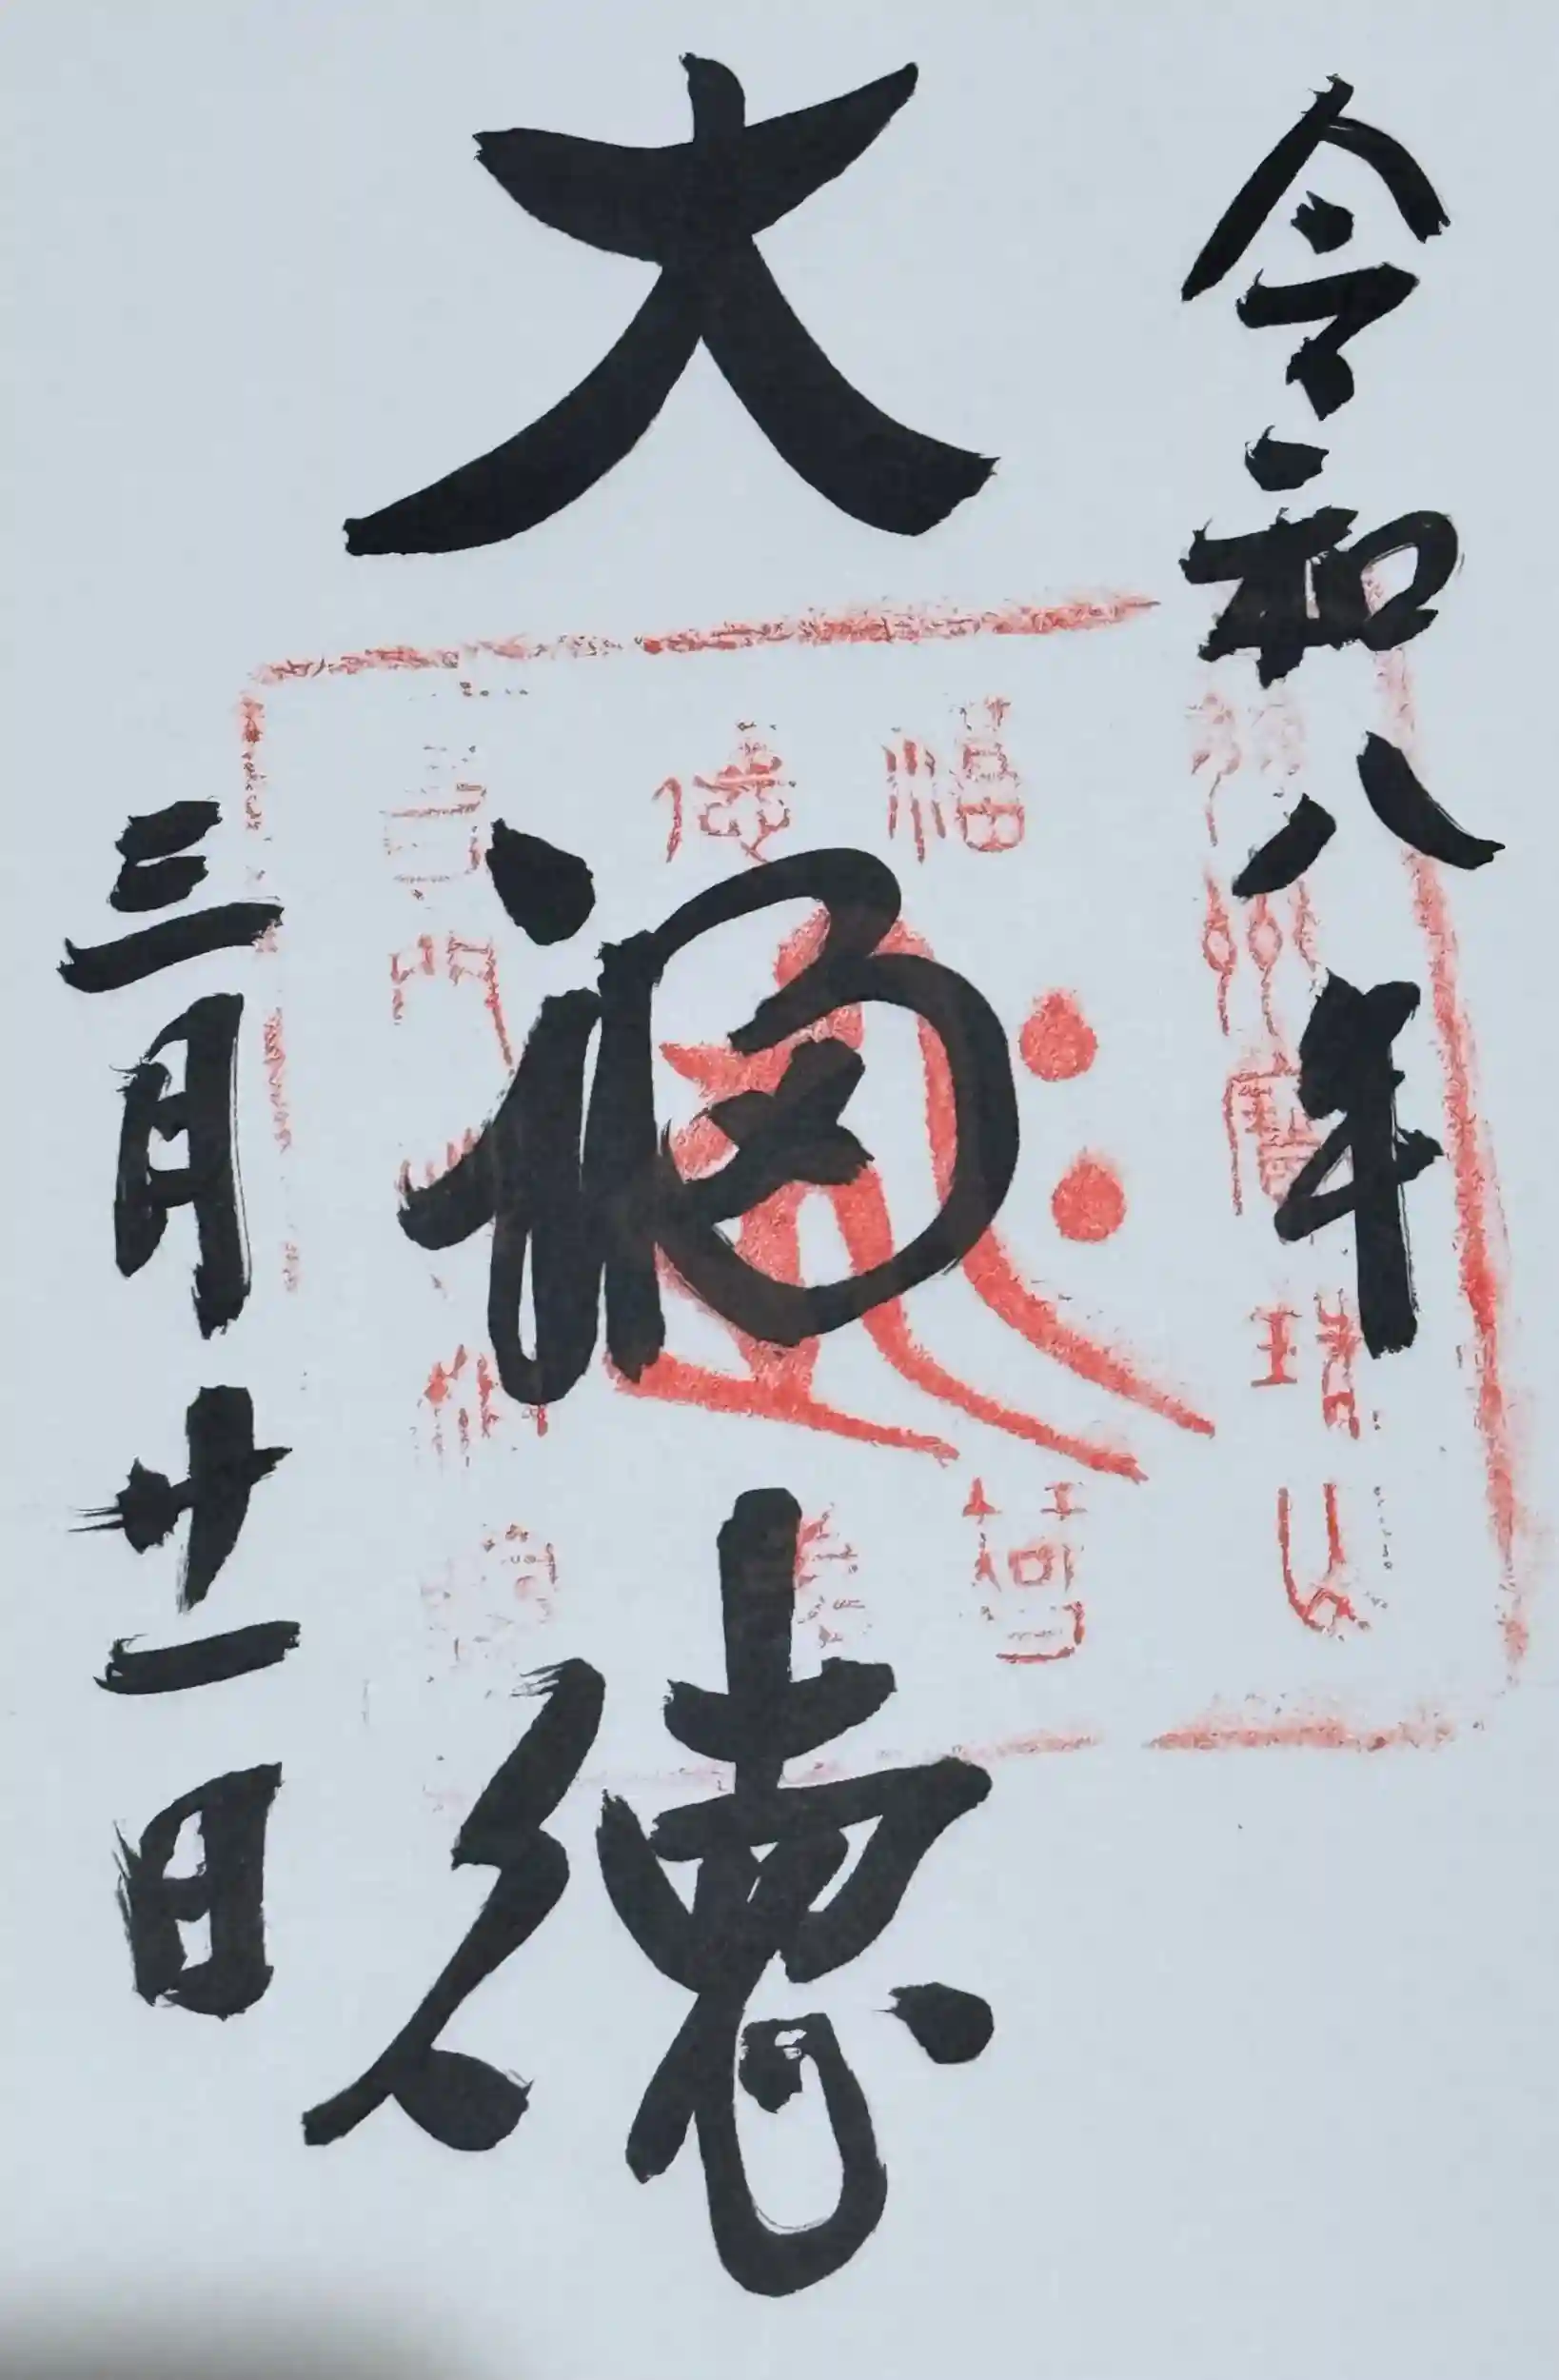 令和八年
大福徳
三月廿一日